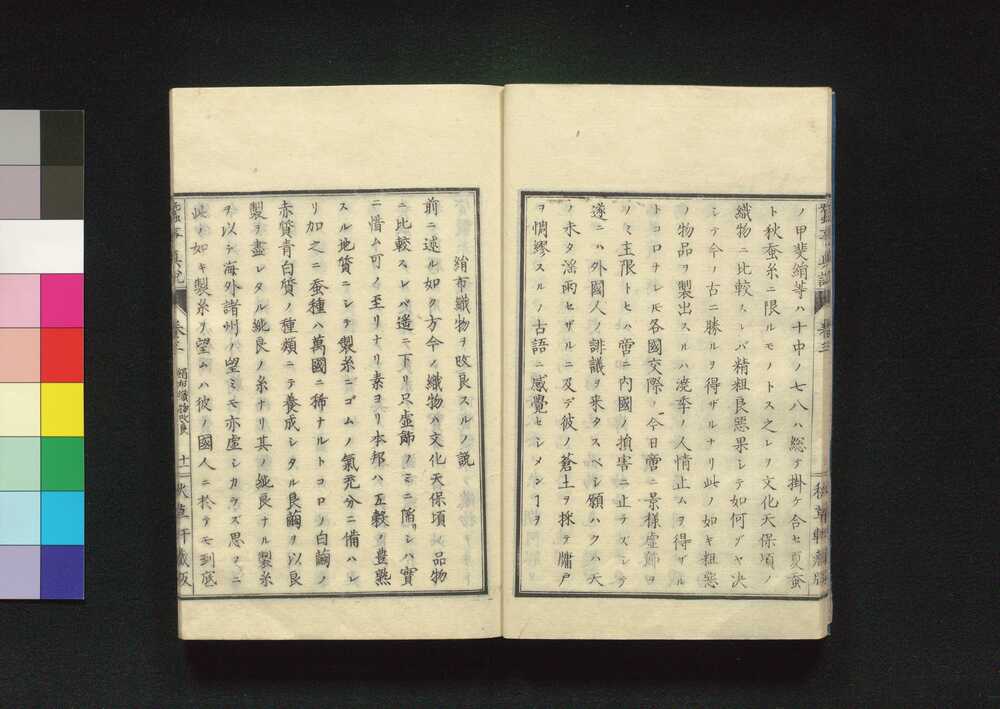 ノ甲斐絹等ハ十中ノ七八ハ総テ掛ケ合セ夏蚕
ト秋蚕糸ニ限ルモノトス之レヲ文化天保頃ノ
織物ニ比較スレバ精粗良悪果シテ如何ゾヤ决
シテ今ノ古ニ勝ルヲ得ザルナリ此ノ如キ粗悪
ノ物品ヲ製出スルハ澆季ノ人情止ムヲ得ザル
トコロナレモ各國交際ノ今日啻ニ景様虚飾ヲ
ノミ主限トセハ啻ニ内國ノ損害ニ止ラズシテ
遂ニハ外國人ノ誹議ヲ来タスベシ願ハクハ天
ノ未タ滛雨セザルニ及デ彼ノ蒼土ヲ採テ牖戸
ヲ惆繆スルノ古語ニ感覺セシメンヿヲ
絹布織物ヲ改良スルノ説
前ニ述ル如ク方今ノ織物ハ文化天保頃ノ品物
ニ比較スレバ遥ニ下リ只虚飾ノミニ陥シハ實
ニ惜ム可ノ至リナリ素ヨリ本邦ハ五穀ノ豊熟
スル地質ニシテ製糸ニゴムノ氣充分ニ備ハレ
リ加之ニ蚕種ハ萬國ニ稀ナルトコロノ白繭ノ
赤質青白質ノ種類ニテ養成シタル良繭ヲ以良
製ヲ盡レタル純良ノ糸ナリ其ノ純良ナル製糸
ヲ以テ海外諸州ノ望ミモ亦虚シカラズ思フニ
此ノ如キ製糸ヲ望ムハ彼ノ國人ニ於テモ到底
巻三 絹布織物改良 十一